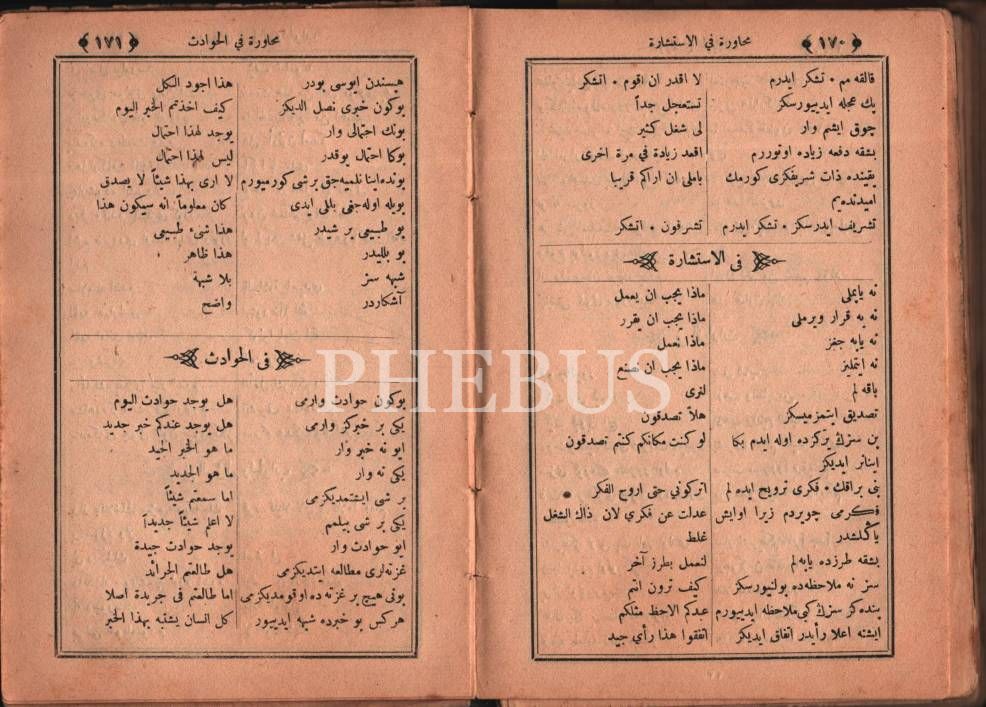 ﴿ ١٧٠ ﴾ محاورة في الاستشارة
قالقه مم • تشكر ايدرم لا اقدر ان اقوم • اتشكر
پك عجله ايدييورسكز تستعجل جداً
چوق ايشم وار لى شغل كثير
بشقه دفعه زياده اوتوررم اقعد زيادة في مرة اخرى
يقينده ذات شريفكزى كورمك باملى ان اراكم قريبا
اميدنده‌يم
تشريف ايدرسكز • تشكر ايدرم تشرفون • اتشكر
فى الاستشارة
نه ياپملى ماذا يجب ان يعمل
نه يه قرار ويرملى ماذا يجب ان يقرر
نه ياپه جغز ماذا نعمل
نه ايتمليز ماذا يجب ان نصنع
باقه لم لنرى
تصديق ايتمزميسكز هلاّ تصدقون
بن سزك يركزده اوله ايدم بكا لو كنت مكانكم كنتم تصدقون
اينانر ايديكز
بنى براقك • فكرى ترويج ايده لم اتركوني حتى اروج الفكر
فكرمى چويردم زيرا اوايش عدلت عن فكري لان ذاك الشغل
ياكلشدر غلط
بشقه طرزده ياپه لم لنعمل بطرز آخر
سز نه ملاحظه ده بولنيورسكز كيف ترون انتم
بنده كز سزك كبى ملاحظه ايدييورم عبدكم الاحظ مثلكم
ايشته اعلا رأيدر اتفاق ايديكز اتفقوا هذا رأي جيد
محاورة في الحوادث ﴿ ١٧١ ﴾
هپسندن ايوسى بودر هذا اجود الكل
بوكون خبرى نصل الديكز كيف اخذتم الخبر اليوم
بونك احتمالى وار يوجد لهذا احتمال
بوكا احتمال يوقدر ليس لهذا احتمال
بونده اينانلميه جق برشى كورميورم لا ارى بهذا شيئاً لا يصدق
بويله اوله جغى بللى ايدى كان معلوماً انه سيكون هذا
بو طبيعى بر شيدر هذا شيء طبيعى
بو بلليدر هذا ظاهر
شبهه سز بلا شبهة
آشكاردر واضح
فى الحوادث
بوكون حوادث وارمى هل يوجد حوادث اليوم
يكى بر خبركز وارمى هل يوجد عندكم خبر جديد
ايو نه خبر وار ما هو الخبر الجيد
يكى نه وار ما هو الجديد
بر شى ايشتمديكزمى اما سمعتم شيئاً
يكى بر شى بيلمم لا اعلم شيئاً جديداً
ايو حوادث وار يوجد حوادث جيدة
غزته لرى مطالعه ايتديكزمى هل طالعتم الجرائد
بونى هيچ بر غزته ده اوقومديكزمى اما طالعتم فى جريدة اصلا
هركس بو خبرده شبهه ايدييور كل انسان يشتبه بهذا الخبر
PHEBUS